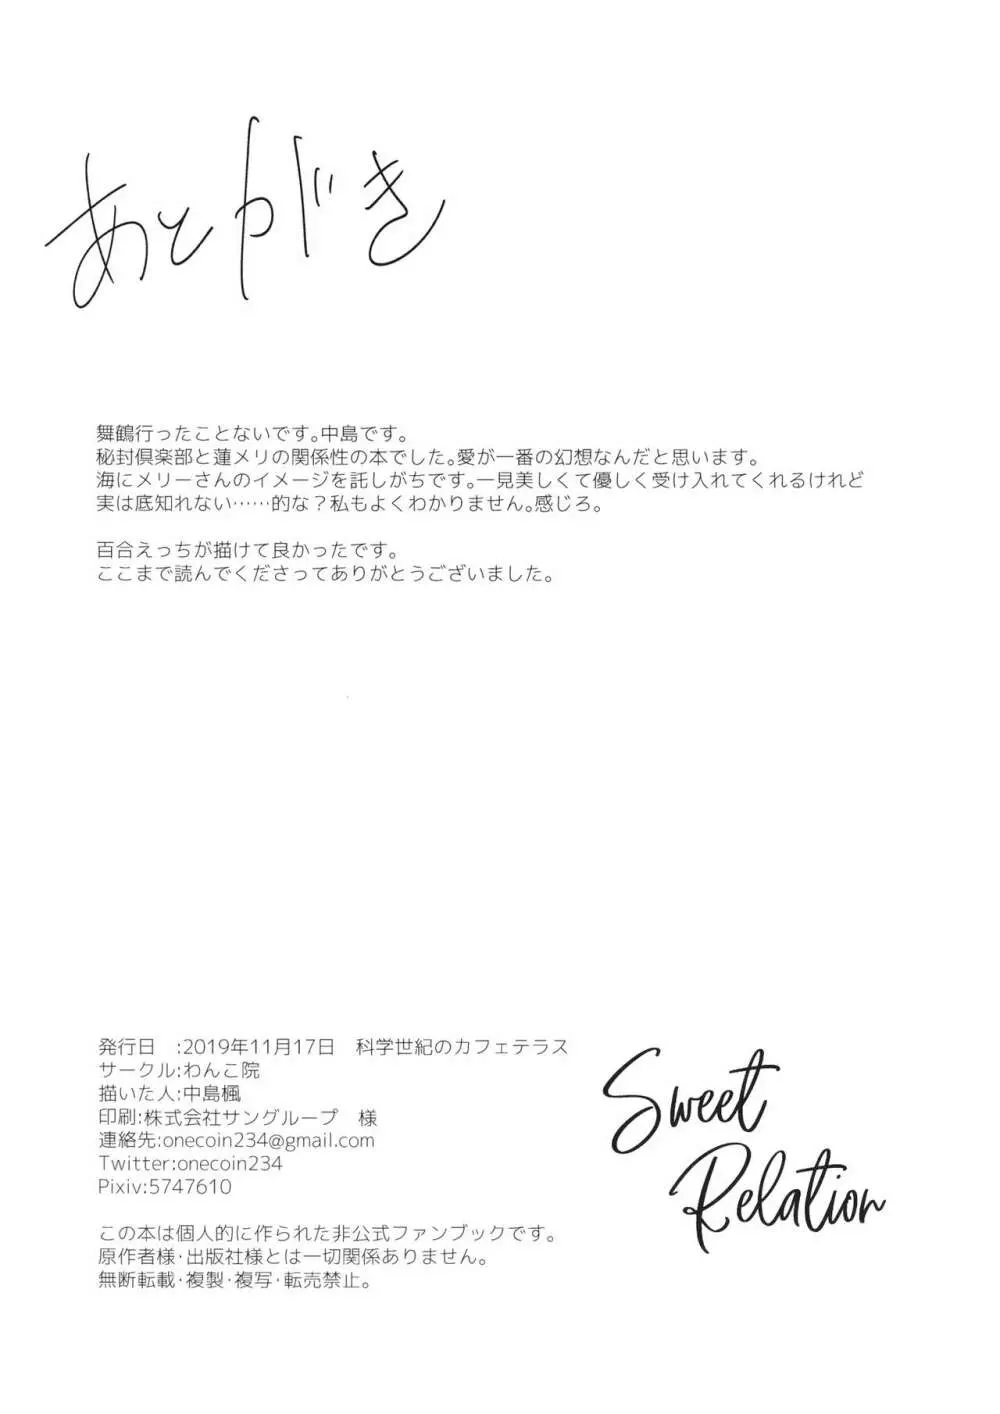 あとがき
舞鶴行ったことないです。中島です。
秘封倶楽部と蓮メリの関係性の本でした。愛が一番の幻想なんだと思います。
海にメリーさんのイメージを託しがちです。一見美しくて優しく受け入れてくれるけれど
実は底知れない……的な？私もよくわかりません。感じろ。
百合えっちが描けて良かったです。
ここまで読んでくださってありがとうございました。
発行日　:2019年11月17日　科学世紀のカフェテラス
サークル:わんこ院
描いた人:中島楓
印刷:株式会社サングループ　様
連絡先:onecoin234@gmail.com
Twitter:onecoin234
Pixiv:5747610
この本は個人的に作られた非公式ファンブックです。
原作者様·出版社様とは一切関係ありません。
無断転載·複製·複写·転売禁止。
Sweet
Relation